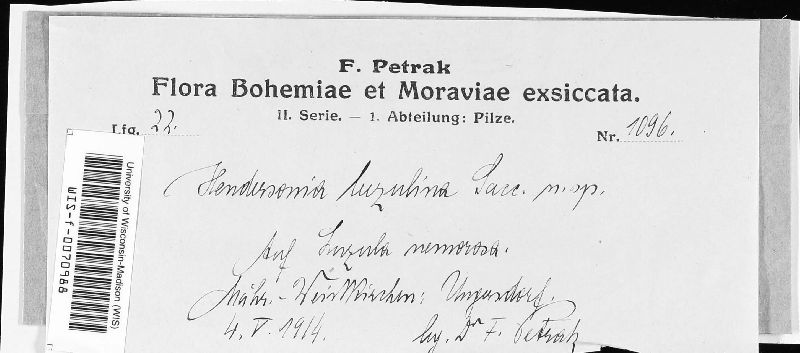 F. Petrak
Flora Bohemiae et Moraviae exsiccata.
II. Serie. — 1. Abteilung: Pilze.
Lfg. 22. Nr. 1096.
Hendersonia luzulina Sacc. n. sp.
Auf Luzula nemorosa.
Mähr.-Weißkirchen: Ungersdorf.
4. V. 1914. lg. Dr F. Petrak
University of Wisconsin-Madison (WIS)
WIS-f-0070988